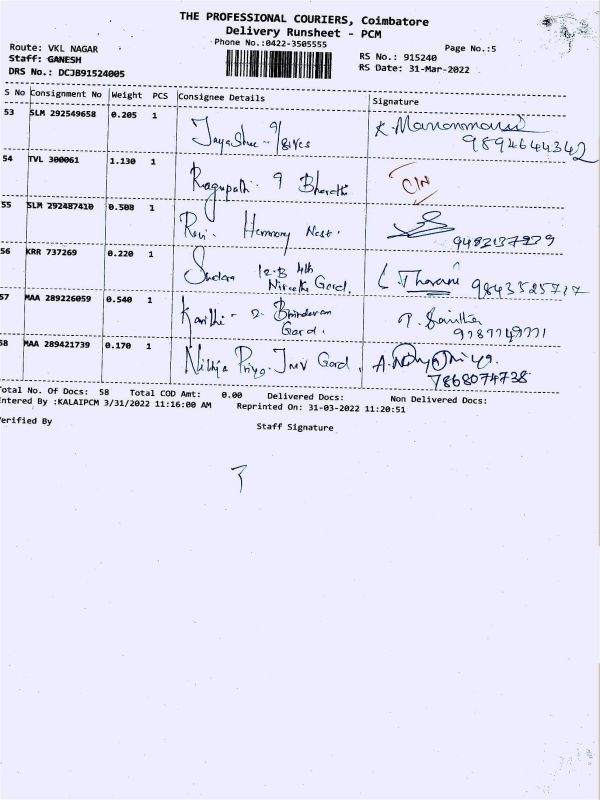 THE PROFESSIONAL COURIERS, Coimbatore
Delivery Runsheet - PCM
Phone No.:0422-3505555
Page No.:5
Route: VKL NAGAR
Staff: GANESH
DRS No.: DCJB91524005
RS No.: 915240
RS Date: 31-Mar-2022
S No Consignment No Weight PCS Consignee Details Signature
53 SLM 292549658 0.205 1 JayaShree - 9/ K. Manonmani
9894644342
54 TVL 300061 1.130 1 Ragupathi. 9 Bharathi CIN
55 SLM 292487410 0.508 1 Ravi. Harmony Nest.
56 KRR 737269 0.220 1 12-B 4th Gard. Tharani 9843525717
57 MAA 289226059 0.540 1 2. Brindavan
Gard.
58 MAA 289421739 0.170 1 Nithya Priya. Gard. A. Nithya Priya.
7868074738
Total No. Of Docs: 58 Total COD Amt: 0.00 Delivered Docs: Non Delivered Docs:
Entered By :KALAIPCM 3/31/2022 11:16:00 AM Reprinted On: 31-03-2022 11:20:51
Verified By
Staff Signature